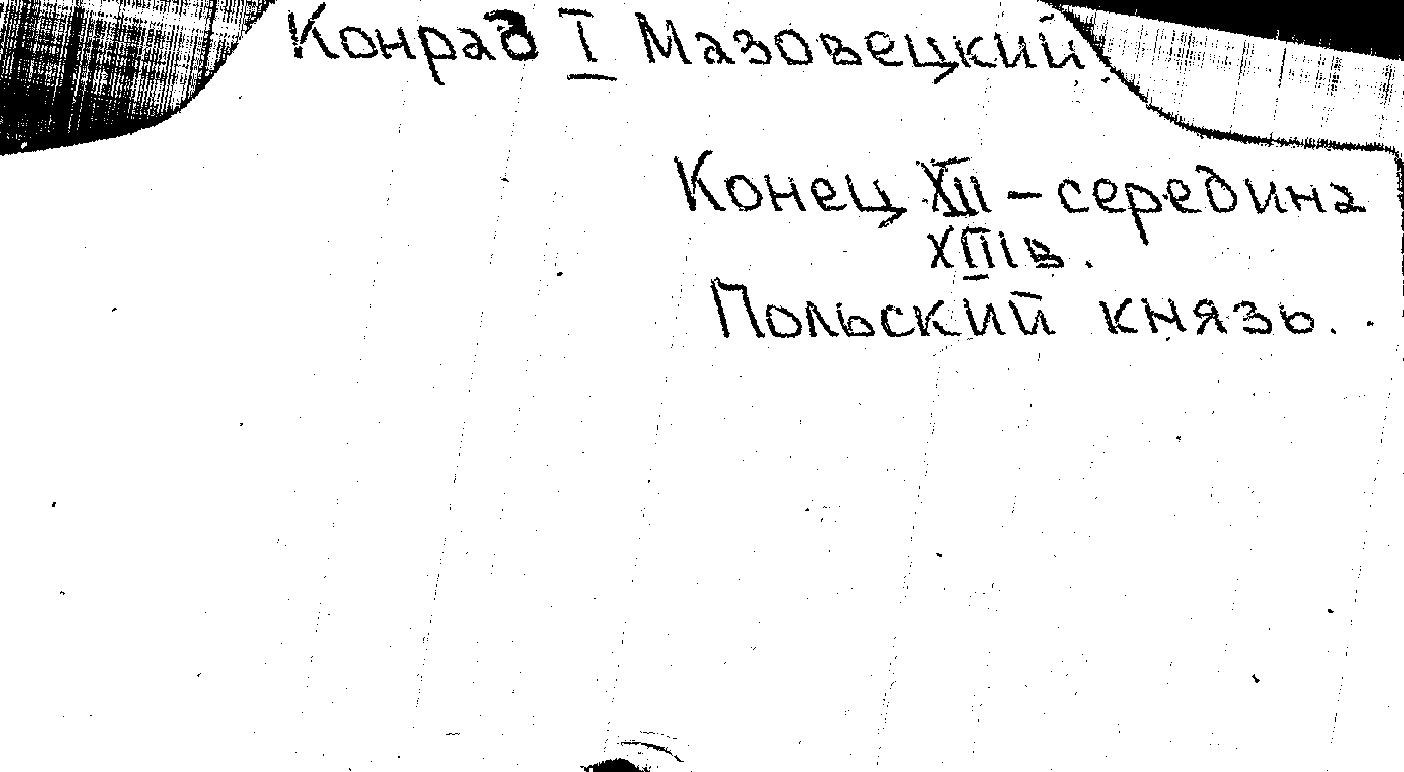 Конрад I Мазовецкий.
Конец XII – середина
XIII в.
Польский князь.